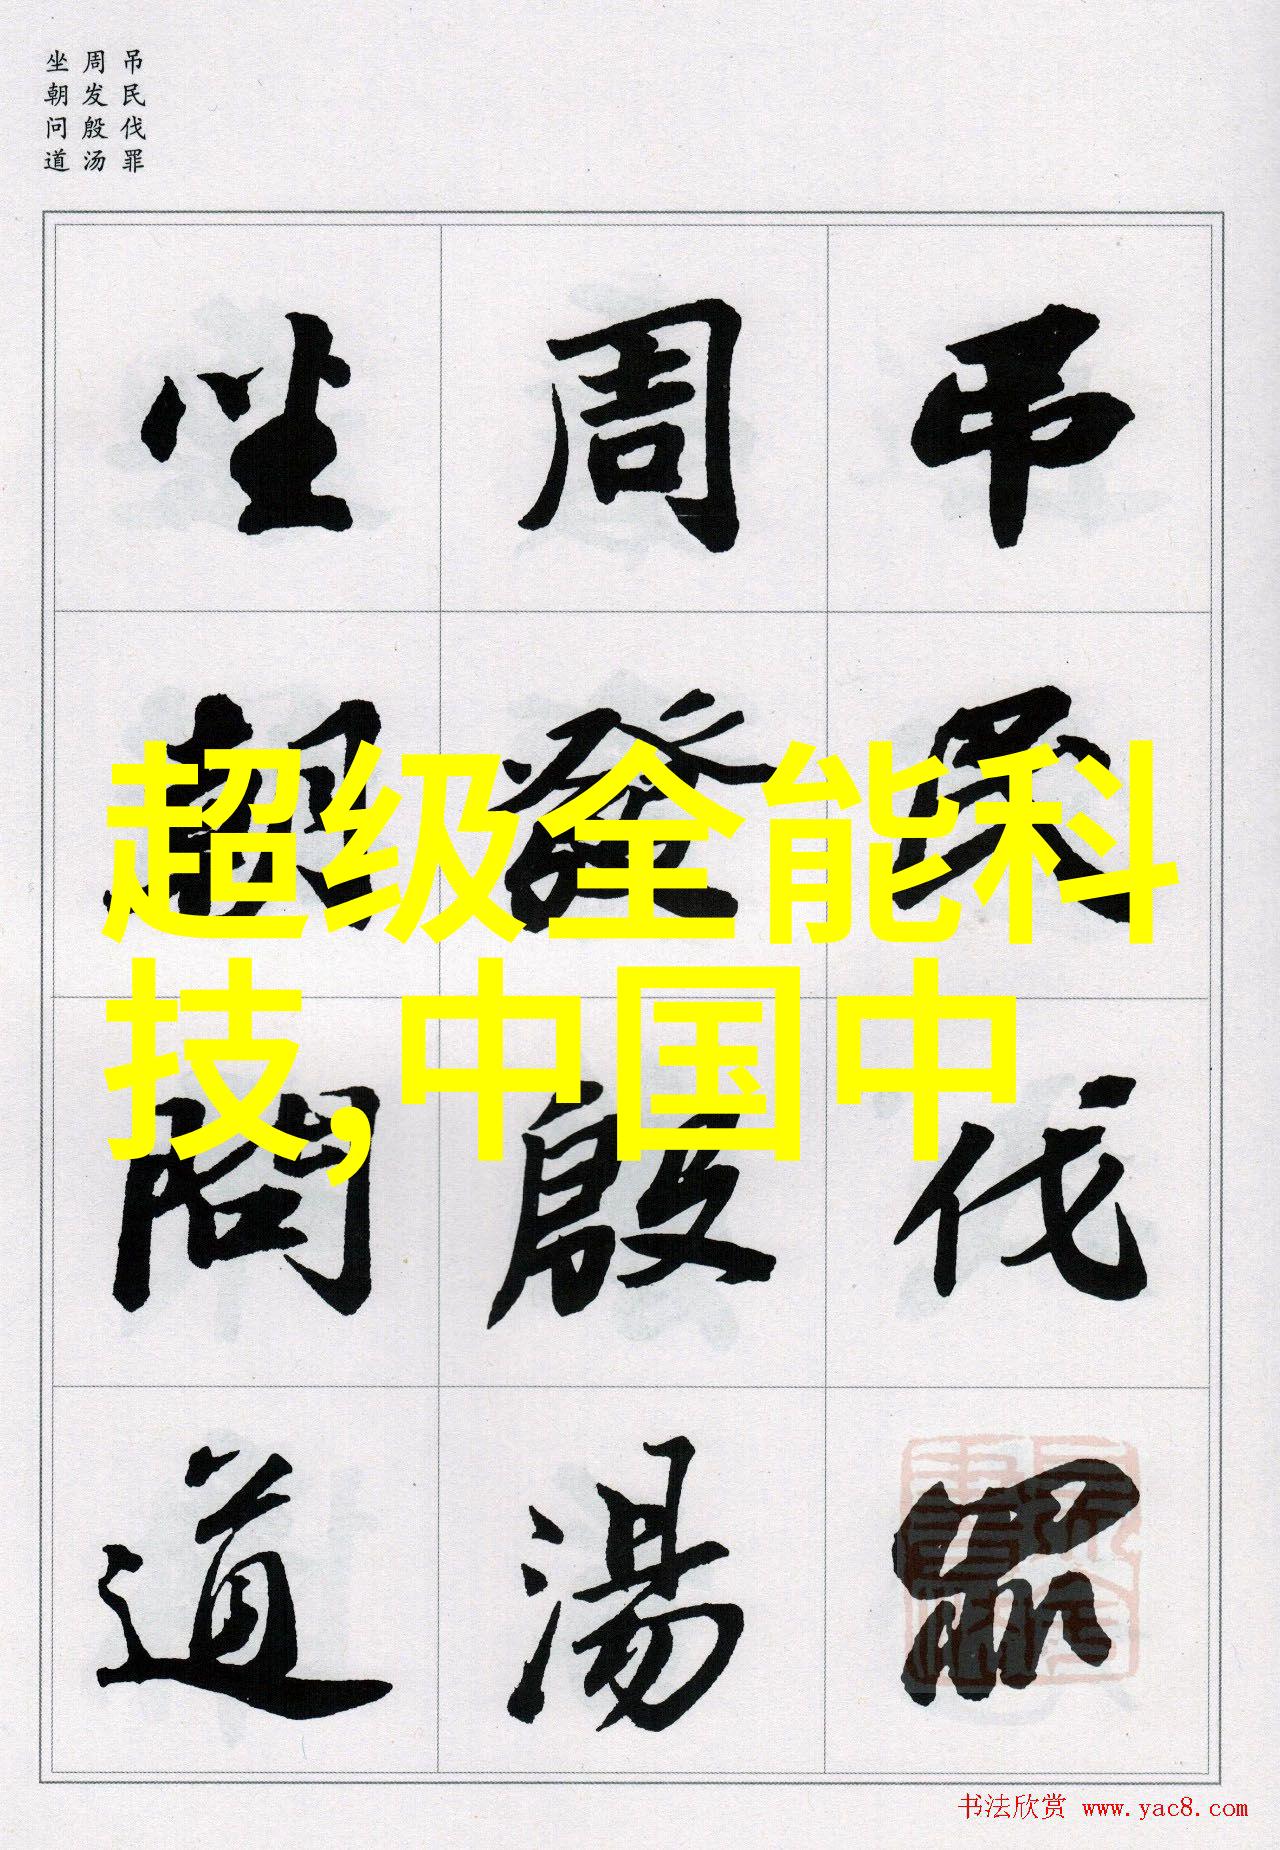 吊民伐罪
周发殷汤
坐朝问道
吊民伐罪
周發殷湯
坐朝問道
超级全能科
技,中国中
书法欣赏 www.yac8.com